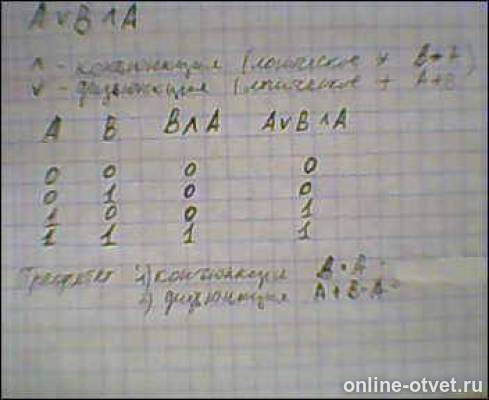 A ∨ B ∧ A
∧ - конъюнкция (логическое * B*A)
∨ - дизъюнкция (логическое + A+B
A B B∧A A∨B∧A
0 0 0 0
0 1 0 0
1 0 0 1
1 1 1 1
1) конъюнкция B*A
2) дизъюнкция A+B*A
online-otvet.ru